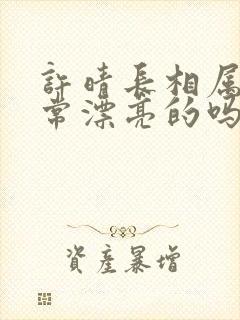 許晴長相屬
常漂亮的嗎
資產暴增